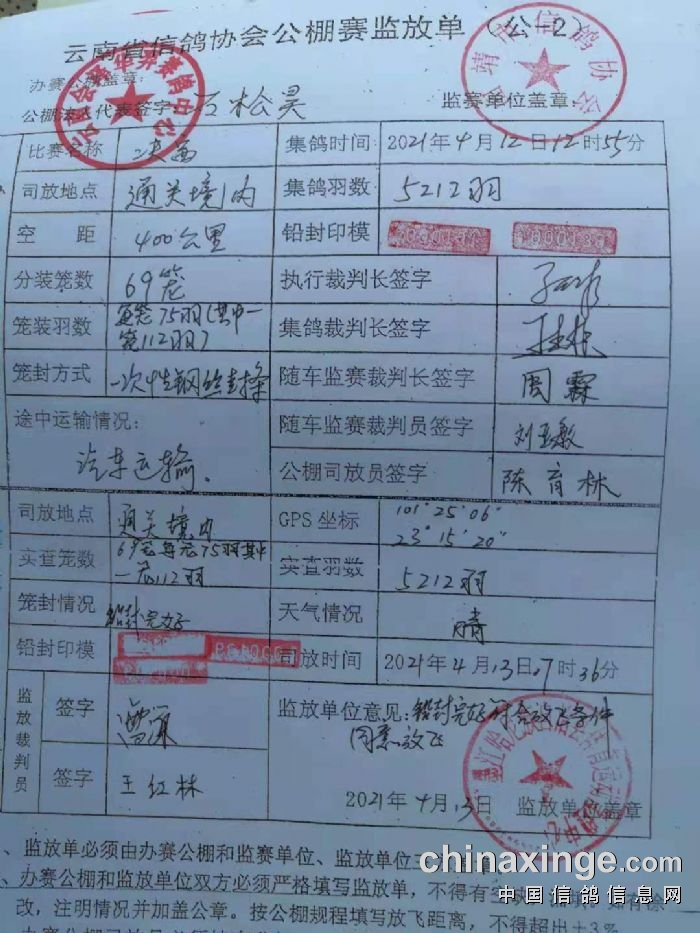 云南省信鸽协会公棚赛监放单（公-2）
办赛公棚盖章：
公棚法人代表签字 石松昊 监赛单位盖章：
比赛名称 决赛 集鸽时间 2021年4月12日12时55分
司放地点 通关境内 集鸽羽数 5212羽
空距 400公里 铅封印模
分装笼数 69笼 执行裁判长签字
笼装羽数 每笼75羽(其中一笼112羽) 集鸽裁判长签字
笼封方式 一次性钢丝封条 随车监赛裁判长签字 周霖
途中运输情况： 随车监赛裁判员签字 刘玉敏
汽车运输. 公棚司放员签字 陈育林
司放地点 通关境内 GPS坐标 101°25′06″
23°15′20″
实查笼数 69笼每笼75羽其中一笼112羽 实查羽数 5212羽
笼封情况 铅封完好 天气情况 晴
铅封印模 司放时间 2021年4月13日7时36分
监放裁判员 签字 监放单位意见：铅封完好符合放飞条件
同意放飞
签字 王红林 2021年4月13日 监放单位盖章
、监放单必须由办赛公棚和监赛单位、监放单位三
、办赛公棚和监放单位双方必须严格填写监放单，不得有
改，注明情况并加盖公章。按公棚规程填写放飞距离，不得超出±3%
chinaxinge.com
中国信鸽信息网